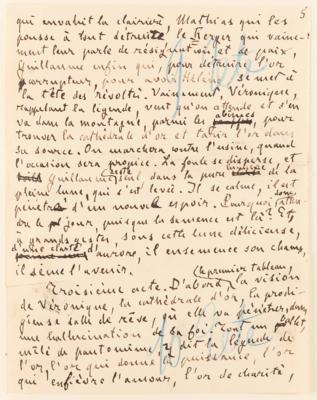 5
qui envahit la clairière. Mathias qui les
pousse à tout détruire, le berger qui vaine-
ment leur parle de résignation et de paix,
Guillaume enfin qui, pour détruire l'or
corrupteur, pour avoir Hélène, se met à
la tête des révoltés. Vainement, Véronique,
rappelant la légende, veut qu'on attende et s'en
va dans la montagne, parmi les abîmes, pour
trouver la cathédrale d'or et tarir l'or dans
sa source. On marchera contre l'usine, quand
l'occasion sera propice. La foule se disperse, et
Guillaume reste seul dans la pure de la
pleine lune, qui s'est levée. Il se calme, il est
pénétré d'un nouvel espoir. Pourquoi atten-
dre le jour, puisque la semence est là? Et,
à grands gestes, sous cette lune délicieuse,
d'une clarté d'aurore, il ensemence son champ,
il sème l'avenir.
Troisième acte. D'abord, le premier tableau, la vision
de Véronique, la cathédrale d'or, la prodi-
gieuse salle de rêve, où elle va pénétrer, dans
une hallucination de sa foi. Tout un ballet,
mêlé de pantomime, y dit la légende de
l'or, l'or qui donne la puissance, l'or
qui enfièvre l'amour, l'or de charité,